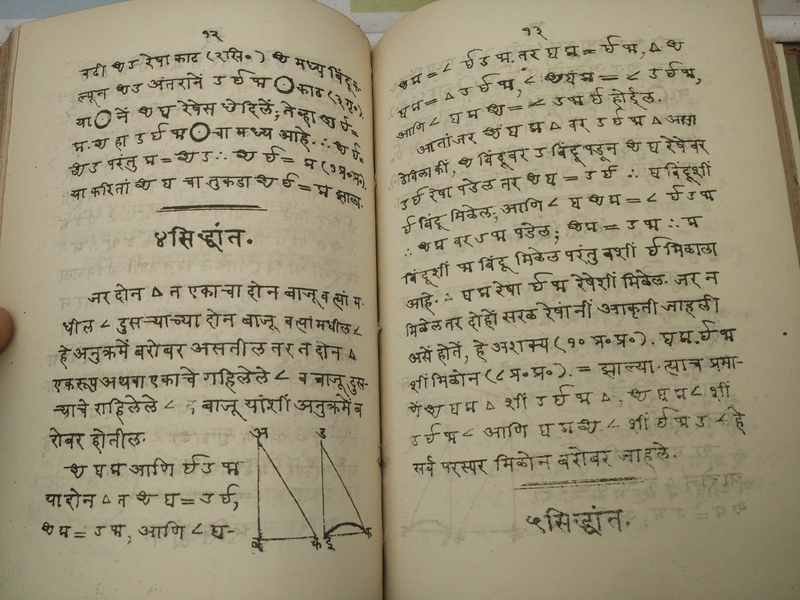 १२
वटी थ उ रेषा काढ (२ सि०) थ मध्य बिंदूक-
ल्पून थउ अंतरानें उ र्घ म ◯ काढ (३ पृ०).
या ◯ नें थ घ रेषेस छेदिलें; तेव्हां थ र्घ =
थ हा उ र्घ म ◯ चा मध्य आहे. ∴ थ र्घ =
थ उ परंतु म = थ उ ∴ थ र्घ = म (१ प्र० प्र०).
या करितां थ घ चा तुकडा थ र्घ = म झाला.
४ सिद्धांत.
जर दोन ∆ त एकाचा दोन बाजू व त्यां म-
धील ∠ दुसऱ्याच्या दोन बाजू व त्यां मधील ∠
हे अनुक्रमें बरोबर असतील तर त दोन ∆
एकरूप अथवा एकाचे राहिलेले ∠ व बाजू दुस-
ऱ्याचे राहिलेले ∠ व बाजू यांशीं अनुक्रमें ब
रोबर होतील.
थ घ म आणि र्घ उ म
या दोन ∆ त थ घ = उ र्घ,
थ म = उ म, आणि ∠ घ-
१३
थ म = ∠ र्घ उ म. तर घ म = र्घ म, ∆ थ
घ म = ∆ उ र्घ म, ∠ थ घ म = ∠ उ र्घ म,
आणि ∠ घ म थ = ∠ उ म र्घ होईल.
आतां जर थ घ म ∆ वर उ र्घ म ∆ असा
ठेविला कीं, थ बिंदूवर उ बिंदू पडून थ घ रेषेवर
उ र्घ रेषा पडेल तर थ घ = उ र्घ ∴ घ बिंदूशीं
र्घ बिंदू मिळेल; आणि ∠ घ थ म = ∠ र्घ उ म
∴ थ म वर उ म पडेल; थ म = उ म ∴ म
बिंदूशीं म बिंदू मिळेल परंतु घ शीं र्घ मिळाला
आहे. ∴ घ म रेषा र्घ म रेषेशीं मिळेल. जर न
मिळेल तर दोहों सरळ रेषांनीं आकृती जाहली
असें होतें, हे अशक्य (१० प्र० प्र०). घ म, र्घ म
शीं मिळोन (८ प्र० प्र०). = झाल्या. त्याच प्रमा-
णें थ घ म ∆ शीं उ र्घ म ∆, थ घ म ∠ शीं
उ र्घ म ∠ आणि घ म थ ∠ शीं र्घ म उ ∠ हे
सर्व परस्पर मिळोन बरोबर जाहले.
५ सिद्धांत.